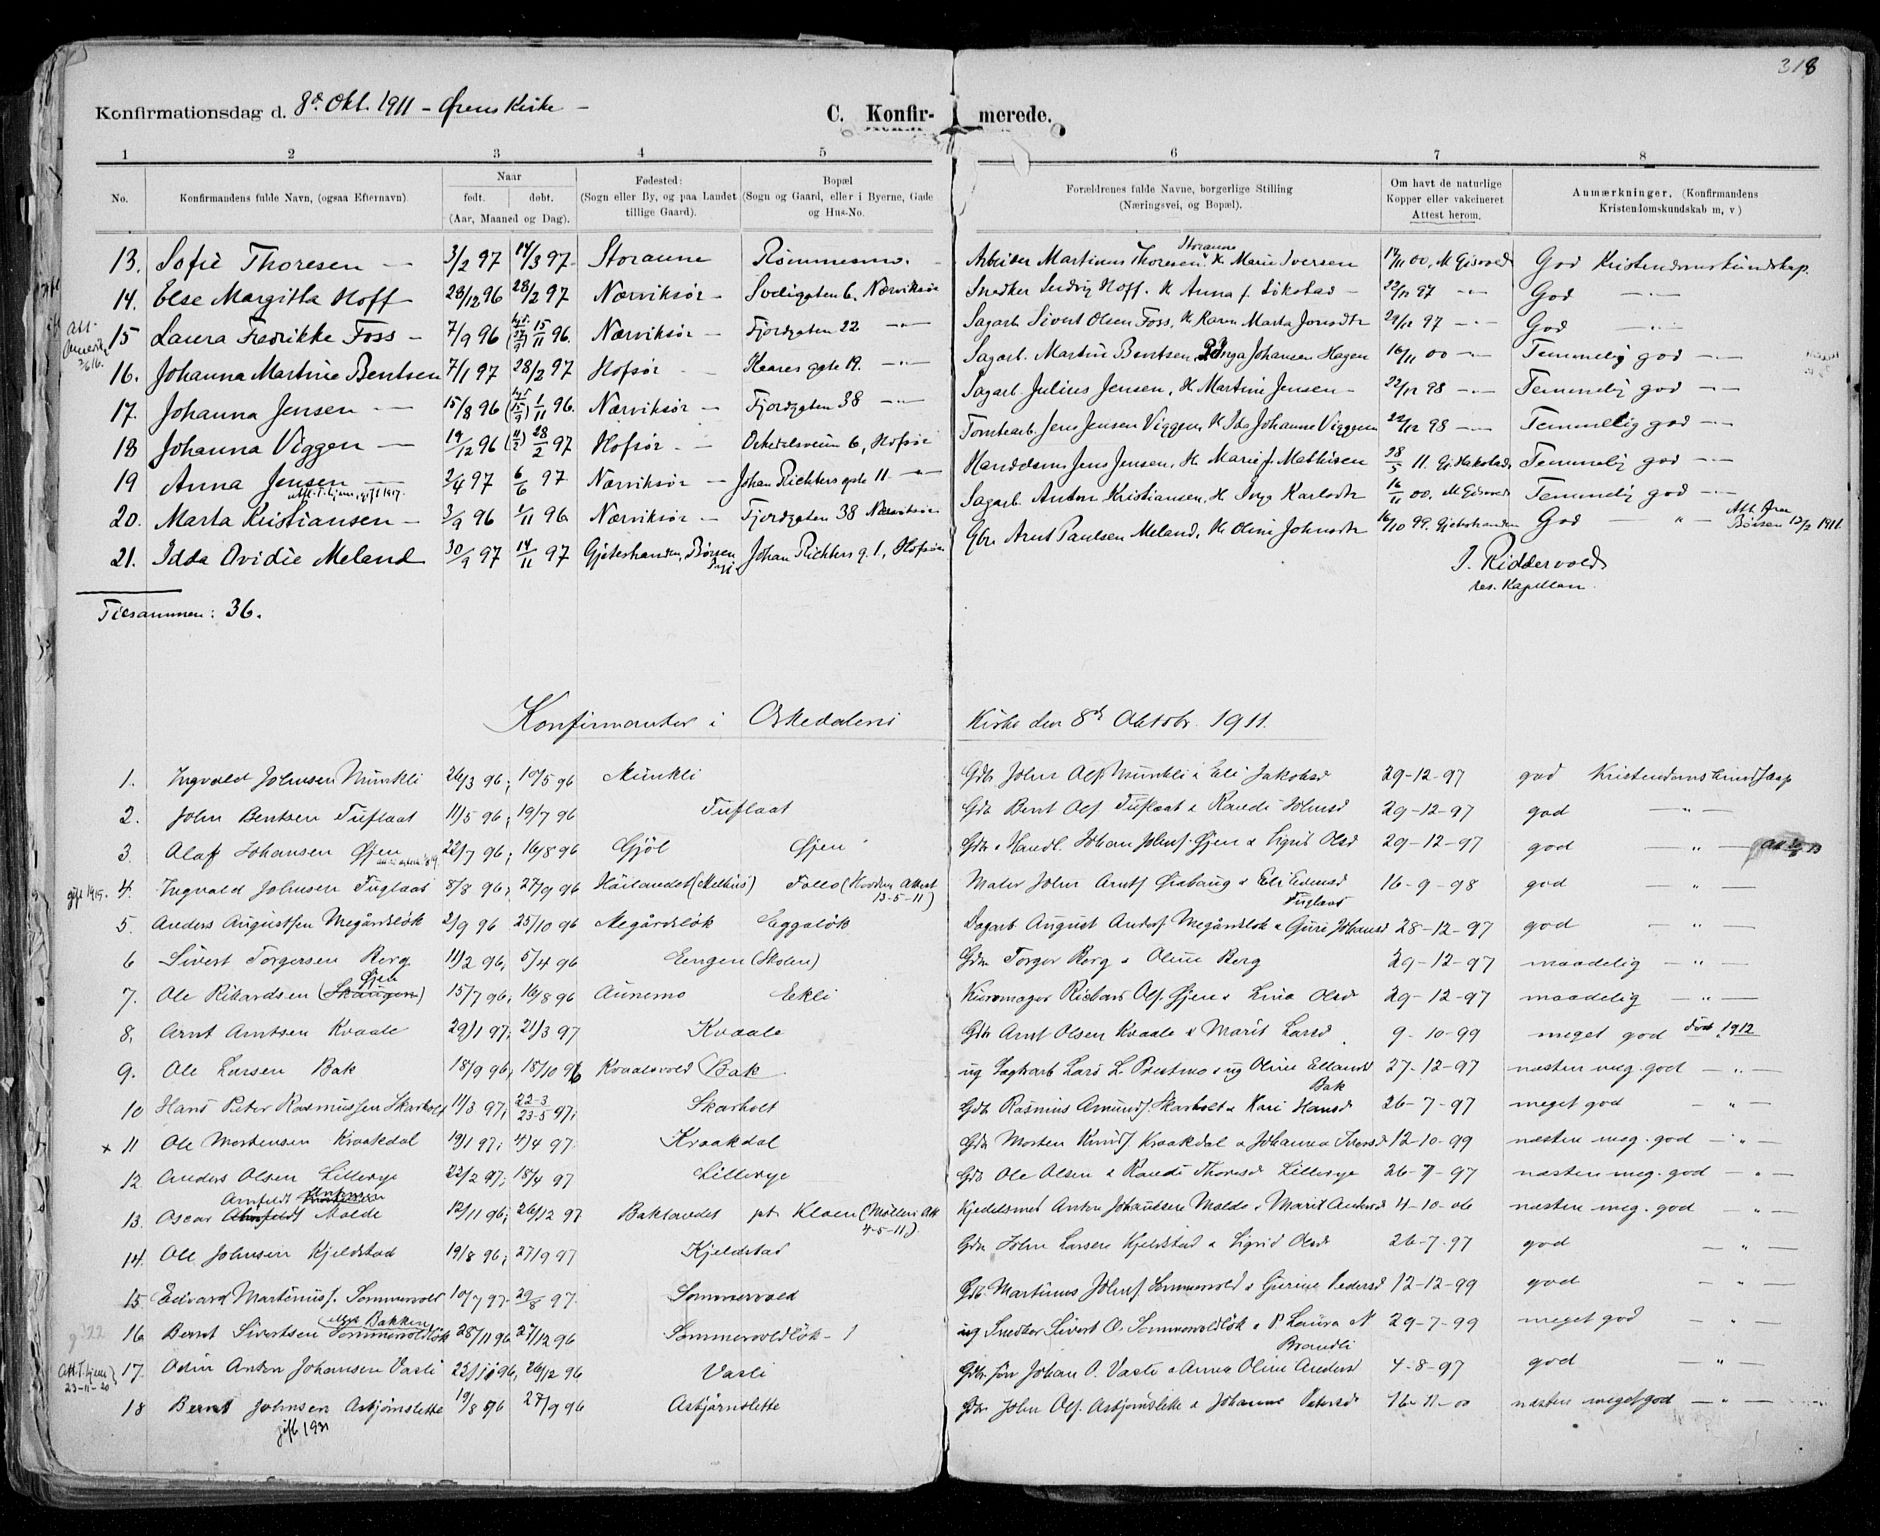 318
Konfirmationsdag d. 8de Okt. 1911 - Ørens Kirke -
C. Konfirmerede.
1 2 3 4 5 6 7 8
No. Konfirmandens fulde Navn, (ogsaa Efternavn). Naar født. døbt. (Aar, Maaned og Dag). Fødested: (Sogn eller By, og paa Landet tillige Gaard). Bopæl (Sogn og Gaard, eller i Byerne, Gade og Hus-No. Forældrenes fulde Navne, borgerlige Stilling (Næringsvei, og Bopæl). Om havt de naturlige Kopper eller vakcineret Attest herom. Anmærkninger. (Konfirmandens Kristendomskundskab m, v)
13. Sofie Thoresen — 3/2 97 14/3 97 Storaune Rømmesmo. Arbeider Martinus Thoresen Storaune H. Marie Iversen 17/11 00, M Gisvold God Kristendomskundskap.
14. Else Margitta Hoff 28/12 96 28/2 97 Nærviksør - Sveligaten 6, Nærviksør Snedker Ludvig Hoff. H. Anna f. Løkstad - 22/12 97 -"- God -"-
15 Laura Fredrikke Foss - 7/9 96 (27/9) 15/11 96. Nærviksør - Fjordgaten 22 -"- Sagarb. Sivert Olsen Foss, H. Karen Marta Jonsdtr 29/12 97 -"- God -"-
16. Johanna Martine Bentsen 7/1 97 28/2 97 Hofsør - Kaares gate 19. -"- Sagarb. Martin Bentsen, Inga Johansen Hagen 16/11 00 -"- Temmelig god -"-
17. Johanna Jensen — 15/8 96 (15/9) 1/11 96. Nærviksør - Fjordgaten 38 -"- Sagarb. Julius Jensen, H. Martine Jensen - 22/12 98 -"- Temmelig god -"-
18 Johanna Viggen — 19/12 96 28/2 97 Hofsør - Orkedalsveien 6, Hofsør Tomtearb. Jens Jensen Viggen H Ida Johanne Viggen 22/12 98 -"- Temmelig god -"-
19 Anna Jensen — gift 1917. 2/4 97 6/6 97 Nærviksør - Johan Richters gate 11 -"- Handelsm. Jens Jensen, H. Marie f. Mathisen 28/5 11. Temmelig god -"-
20. Marta Kristiansen - 3/9 96 1/11 96 Nærviksør - Fjordgaten 38 Nærviksør Sagarb. Anton Kristiansen, H Inga Karlsdtr 16/11 00, M Gisvold Temmelig god -"-
21. Idda Ovidie Meland 30/9 97 14/11 97 Gjeteshanden, Børsen Johan Richters g. 1, Hofsør Gbr. Arnt Paulsen Meland, H. Oline Johnsdtr 16/10 99. God — " — Børsen 1911
J. Riddervold
res. Kapellan.
Tilsammen: 36.
Konfirmanter i Orkedalens Kirke den 8de Oktobr. 1911.
1. Ingvald Johnsen Munkli 26/3 96; 10/5 96 Munkli Gdr. John Ols. Munkli & Eli Jakobsd 29-12-97 god Kristendomskundskap
2. John Bentsen Tuflaat 11/5 96; 19/7 96 Tuflaat Gdr. Bent Ols. Tuflaat & Randi Johnsd 29-12-97 god — " —
3 Olaf Johansen Øien 22/7 96; 16/8 96 Gjøl Øien Gdr. & Handl. Johan Johns. Øien & Sigrid Olsd 29-12-97 god — " —
gift 1915. 4. Ingvald Johnsen Fuglaas 8/8 96; 27/9 96 (Melhus) Follo 13-5-11) Maler John Arnts & Eli Fuglaas 16-9-98 god — " —
5. Anders Augustsen Megårdsløk 2/9 96 25/10 96 Megårdsløk Eggaløk Dagarb. August Anders. Megårdsløk & Guri Johansd 28-12-97 god — " —
6 Sivert Torgersen Berg 11/2 96; 5/4 96 Eengen (Skolen) Gdr. Torger Berg & Oline Berg 29-12-97 maadelig — " —
7. Ole Rikardsen (Skaugen) Øien 15/7 96; 16/8 96 Aunemo Eekli Kurvmager Richard Ols. Øien & Lina Olsd 29-12-97 maadelig — " —
8. Arnt Arntsen Kvaale 29/1 97; 21/3 97 Kvaale Gdr Arnt Olsen Kvaale & Marit Larsd 9-10-99 meget god død 1912
9. Ole Larsen Bak 18/9 96; 18/10 96 Kvaalsvold Bak ug Dagarb Lars L. Prestmo & ug Oline Ellandsd Bak 27-12-97 næsten meg. god — " —
10 Hans Peter Rasmussen Skarholt 11/3 97; 22-3 23-5 97; Skarholt Gdr Rasmus Amunds. Skarholt & Kari Hansd 26-7-97 meget god — " —
x 11 Ole Mortensen Kraakdal 19/1 97; 4/4 97 Kraakdal Gdr Morten Knuds. Kraakdal & Johanna Iversd 12-10-99 næsten meg. god — " —
12 Anders Olsen Lillerye 22/2 97; 18/4 97 Lillerye Gdr Ole Olsen & Randi Thoresd Lillerye 26-7-97 næsten meg. god — " —
13. Oscar Arnfeldt Antonsen Molde 12/11 96; 26/12 97 Baklandet pt Kloen 4-5-11) Kjedelsmed Anton Johansen Molde & Marit Andersd 4-10-06 næsten meg. god — " —
14. Ole Johnsen Kjeldstad 19/8 96; 27/9 97 Kjeldstad Gdr. John Larsen Kjeldstad & Sigrid Olsd 26-7-97 god — " —
15. Edvard Martinuss. Sommervold 10/7 97. 29/8 97. Sommervold Gdr. Martinus Johns. Sommervold & Gjurine Pedersd 12-12-99 god — " —
g '22 16. Bernt Sivertsen Sommervoldløk Bakken 28/11 96 27/12 96 Sommervoldløk - 1 ug Snedker Sivert O. Sommervoldløk & P Laura N Brandli 29-7-99 meget god — " —
23-11-20 17. Odin Anton Johansen Vasli 22/11 96, 26/12 96 Vasli Gdr. søn Johan O. Vasli & Anna Oline Andersd 4-8-97 god "
18 Bernt Johnsen Asbjørnslette 19/8 96 27/9 96 Asbjørnslette Gdr. John Ols. Asbjørnslette & Johanna Petersd 16-11-00 næsten meget god — " —
gift 1931